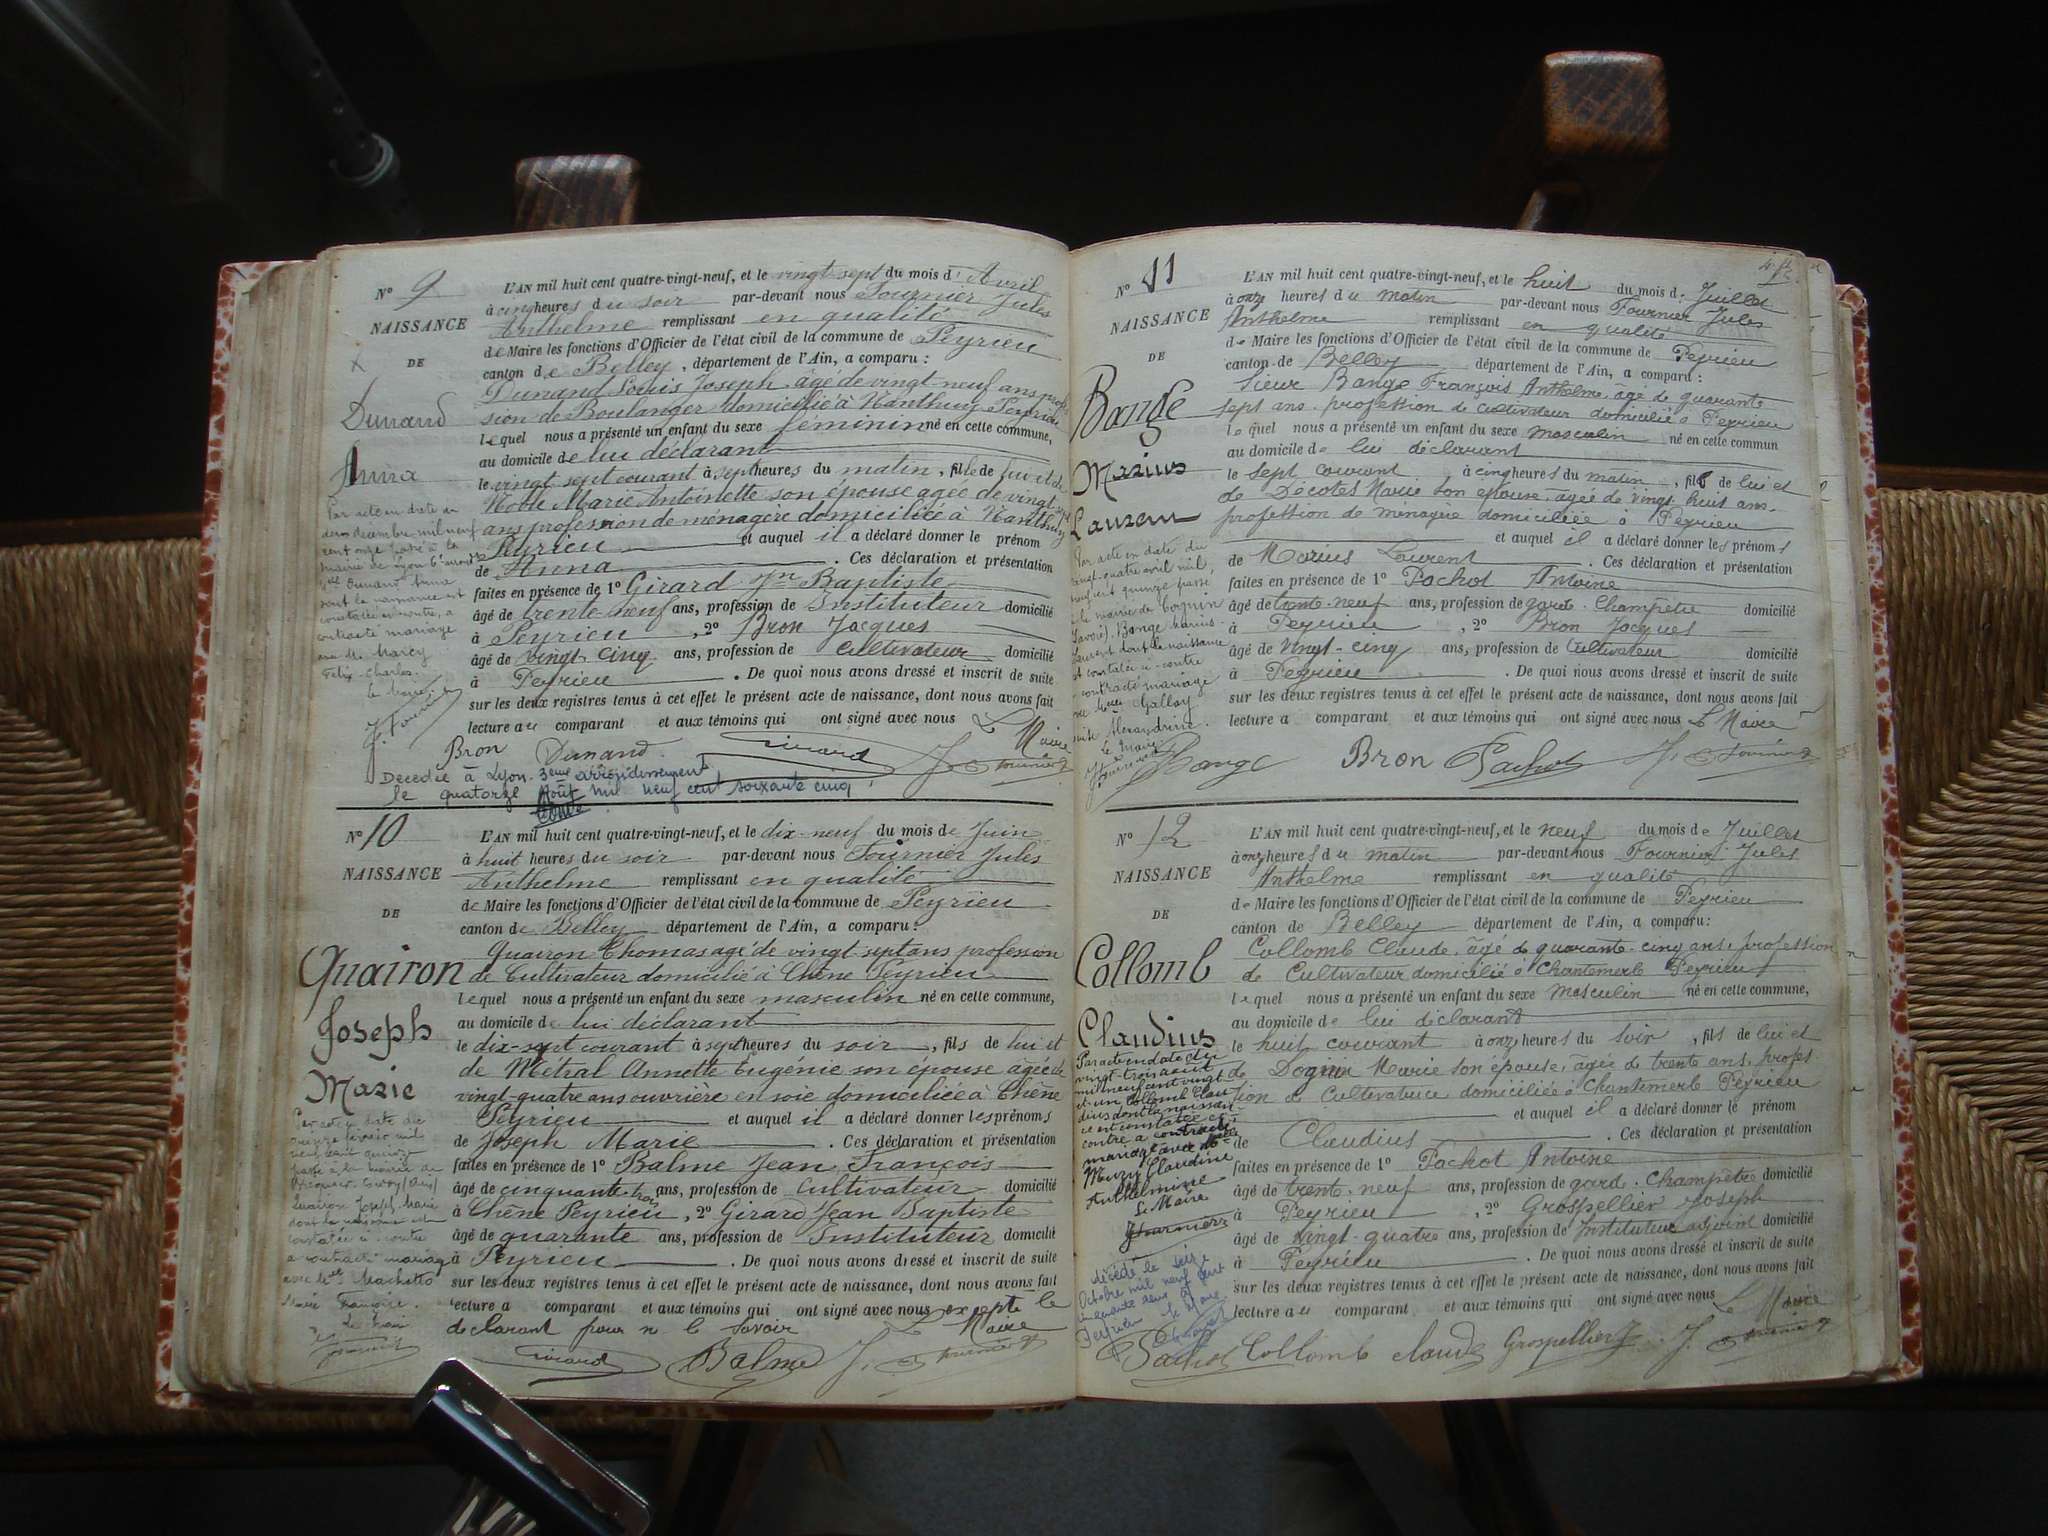 Nº 9
NAISSANCE
DE
Dunand
Anna
L'AN mil huit cent quatre-vingt-neuf, et le vingt-sept du mois d'Avril
à cinq heures du soir par-devant nous Fournier Jules
Anthelme remplissant en qualité
de Maire les fonctions d'Officier de l'état civil de la commune de Peyrieu
canton de Belley, département de l'Ain, a comparu :
Dunand Louis Joseph âgé de vingt neuf ans profes
sion de Boulanger domicilié à Nanthuy Peyrieu
lequel nous a présenté un enfant du sexe féminin né en cette commune,
au domicile de lui déclarant
le vingt sept courant à sept heures du matin, fille de lui et de
Marie Antoinette son épouse agée de vingt sept
ans profession de ménagère domiciliée à Nanthuy
Peyrieu et auquel il a déclaré donner le prénom
de Anna . Ces déclaration et présentation
faites en présence de 1º Girard Jn Baptiste
âgé de trente neuf ans, profession de Instituteur domicilié
à Peyrieu, 2º Bron Jacques
âgé de vingt cinq ans, profession de Cultivateur domicilié
à Peyrieu . De quoi nous avons dressé et inscrit de suite
sur les deux registres tenus à cet effet le présent acte de naissance, dont nous avons fait
lecture au comparant et aux témoins qui ont signé avec nous Le Maire
Bron Dunand Girard J. Fournier
Par acte en date du
deux décembre mil neuf
cent onze passé à la
mairie de Lyon 6e
Dunand Anna
dont la naissance est
constatée ci-contre, a
contracté mariage
avec M. Marcy
Félix-Charles.
Le Maire
J. Fournier
Decedée à Lyon. 3ème arrondissement
le quatorze Août mil neuf cent soixante cinq
Nº 10
NAISSANCE
DE
Quairon
Joseph
Marie
L'AN mil huit cent quatre-vingt-neuf, et le dix-neuf du mois de Juin
à huit heures du soir par-devant nous Fournier Jules
Anthelme remplissant en qualité
de Maire les fonctions d'Officier de l'état civil de la commune de Peyrieu
canton de Belley département de l'Ain, a comparu :
Quairon Thomas agé de vingt sept ans profession
de Cultivateur domicilié à Chêne Peyrieu
lequel nous a présenté un enfant du sexe masculin né en cette commune,
au domicile de lui déclarant
le dix-sept courant à sept heures du soir, fils de lui et
de Métral Annette Eugénie son épouse agée de
vingt-quatre ans ouvrière en soie domiciliée à Chêne
Peyrieu et auquel il a déclaré donner les prénoms
de Joseph Marie . Ces déclaration et présentation
faites en présence de 1º Balme Jean François
âgé de cinquante trois ans, profession de Cultivateur domicilié
à Chêne Peyrieu, 2º Girard Jean Baptiste
âgé de quarante ans, profession de Instituteur domicilié
à Peyrieu . De quoi nous avons dressé et inscrit de suite
sur les deux registres tenus à cet effet le présent acte de naissance, dont nous avons fait
lecture a comparant et aux témoins qui ont signé avec nous excepté le
declarant pour ne le savoir Le Maire
Girard Balme J. Fournier
Par acte en date du
quinze février mil
neuf cent quinze
passé à la mairie de
Quairon Joseph Marie
dont la naissance est
constatée ci-contre
a contracté mariage
avec Machetto
Marie Françoise.
Le Maire
Fournier
Nº 11
NAISSANCE
DE
Bange
Marius
Laurent
L'AN mil huit cent quatre-vingt-neuf, et le huit du mois de Juillet
à onze heures du matin par-devant nous Fournier Jules
Anthelme remplissant en qualité
de Maire les fonctions d'Officier de l'état civil de la commune de Peyrieu
canton de Belley département de l'Ain, a comparu :
Sieur Bange François Anthelme, âgé de quarante
sept ans. profession de cultivateur domicilié à Peyrieu
lequel nous a présenté un enfant du sexe masculin né en cette commun
au domicile de lui déclarant
le sept courant à cinq heures du matin, fils de lui et
de Décotes Marie son épouse, agée de vingt huit ans.
profession de ménagère domiciliée à Peyrieu
et auquel il a déclaré donner les prénoms
de Marius Laurent . Ces déclaration et présentation
faites en présence de 1º Pachot Antoine
âgé de trente-neuf ans, profession de garde-Champêtre domicilié
à Peyrieu, 2º Bron Jacques
âgé de vingt-cinq ans, profession de Cultivateur domicilié
à Peyrieu . De quoi nous avons dressé et inscrit de suite
sur les deux registres tenus à cet effet le présent acte de naissance, dont nous avons fait
lecture a comparant et aux témoins qui ont signé avec nous Le Maire
Bange Bron Pachot J. Fournier
Par acte en date du
vingt-quatre avril mil
neuf cent quinze passé
à la mairie de
(Savoie). Bange Marius
Laurent dont la naissance
est constatée ci-contre
a contracté mariage
avec Gallay
Alexandrine.
Le Maire
Nº 12
NAISSANCE
DE
Collomb
Claudius
L'AN mil huit cent quatre-vingt-neuf, et le neuf du mois de Juillet
à onze heures du matin par-devant nous Fournier Jules
Anthelme remplissant en qualité
de Maire les fonctions d'Officier de l'état civil de la commune de Peyrieu
canton de Belley département de l'Ain, a comparu :
Collomb Claude, âgé de quarante-cinq ans, profession
de Cultivateur domicilié à Chantemerle Peyrieu
lequel nous a présenté un enfant du sexe masculin né en cette commune,
au domicile de lui déclarant
le huit courant à onze heures du soir, fils de lui et
de Dognin Marie son épouse, âgée de trente ans, profes-
sion de Cultivatrice domiciliée à Chantemerle Peyrieu
et auquel il a déclaré donner le prénom
de Claudius . Ces déclaration et présentation
faites en présence de 1º Pachot Antoine
âgé de trente-neuf ans, profession de gard-Champêtre domicilié
à Peyrieu, 2º Grospellier Joseph
âgé de vingt-quatre ans, profession de Instituteur adjoint domicilié
à Peyrieu . De quoi nous avons dressé et inscrit de suite
sur les deux registres tenus à cet effet le présent acte de naissance, dont nous avons fait
lecture au comparant et aux témoins qui ont signé avec nous Le Maire
Pachot Collomb claude Grospellier J. J. Fournier
Par acte en date du
vingt-trois août
mil neuf cent vingt
et un Collomb Clau
dius dont la naissan-
ce est constatée ci-
contre a contracté
mariage avec
Muzy Claudine
Anthelmine
Le Maire
Fournier
décédé le seize
Octobre mil neuf cent
cinquante deux à
Peyrieu le Maire